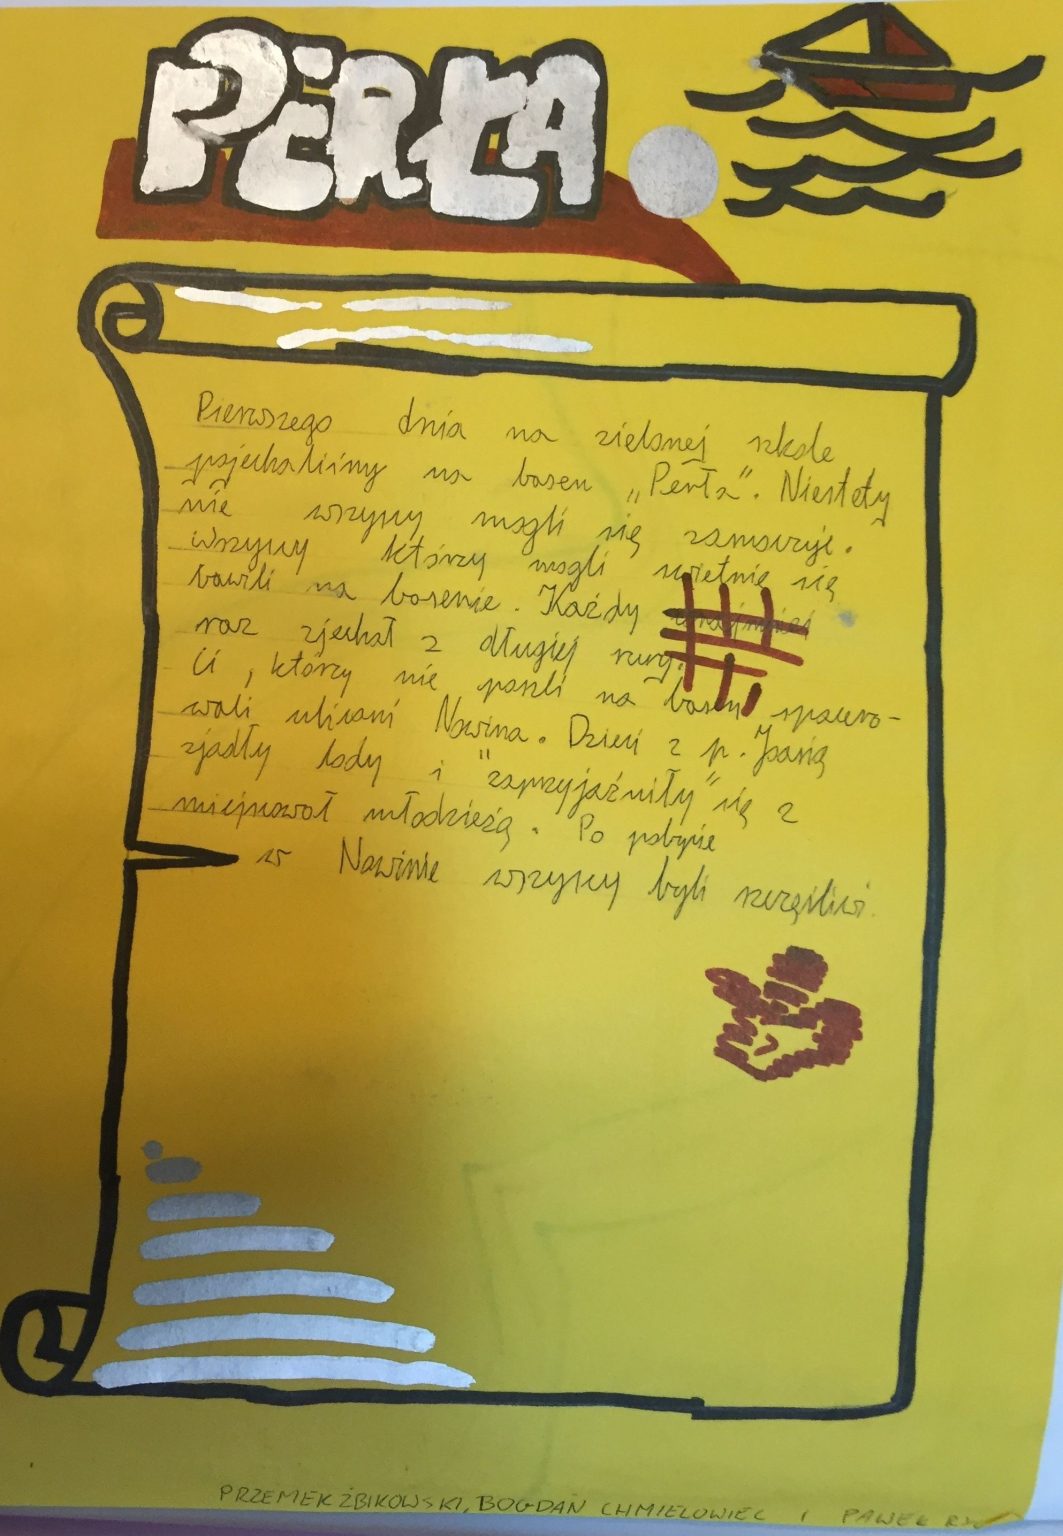 PERŁA
Pierwszego dnia na zielonej szkole
pojechaliśmy na basen „Perła”. Niestety
nie wszyscy mogli się
wszyscy którzy mogli świetnie się
bawili na basenie. Każdy
raz zjechał z długiej rury.
Ci, którzy nie poszli na basen spacero-
wali ulicami Nowina. Dzieci z p. Joasią
zjadły lody i "zaprzyjaźniły" się z
młodzieżą. Po pobycie
w Nowinie wszyscy byli szczęśliwi.
PRZEMEK ŻBIKOWSKI, BOGDAN CHMIELOWIEC I PAWEŁ